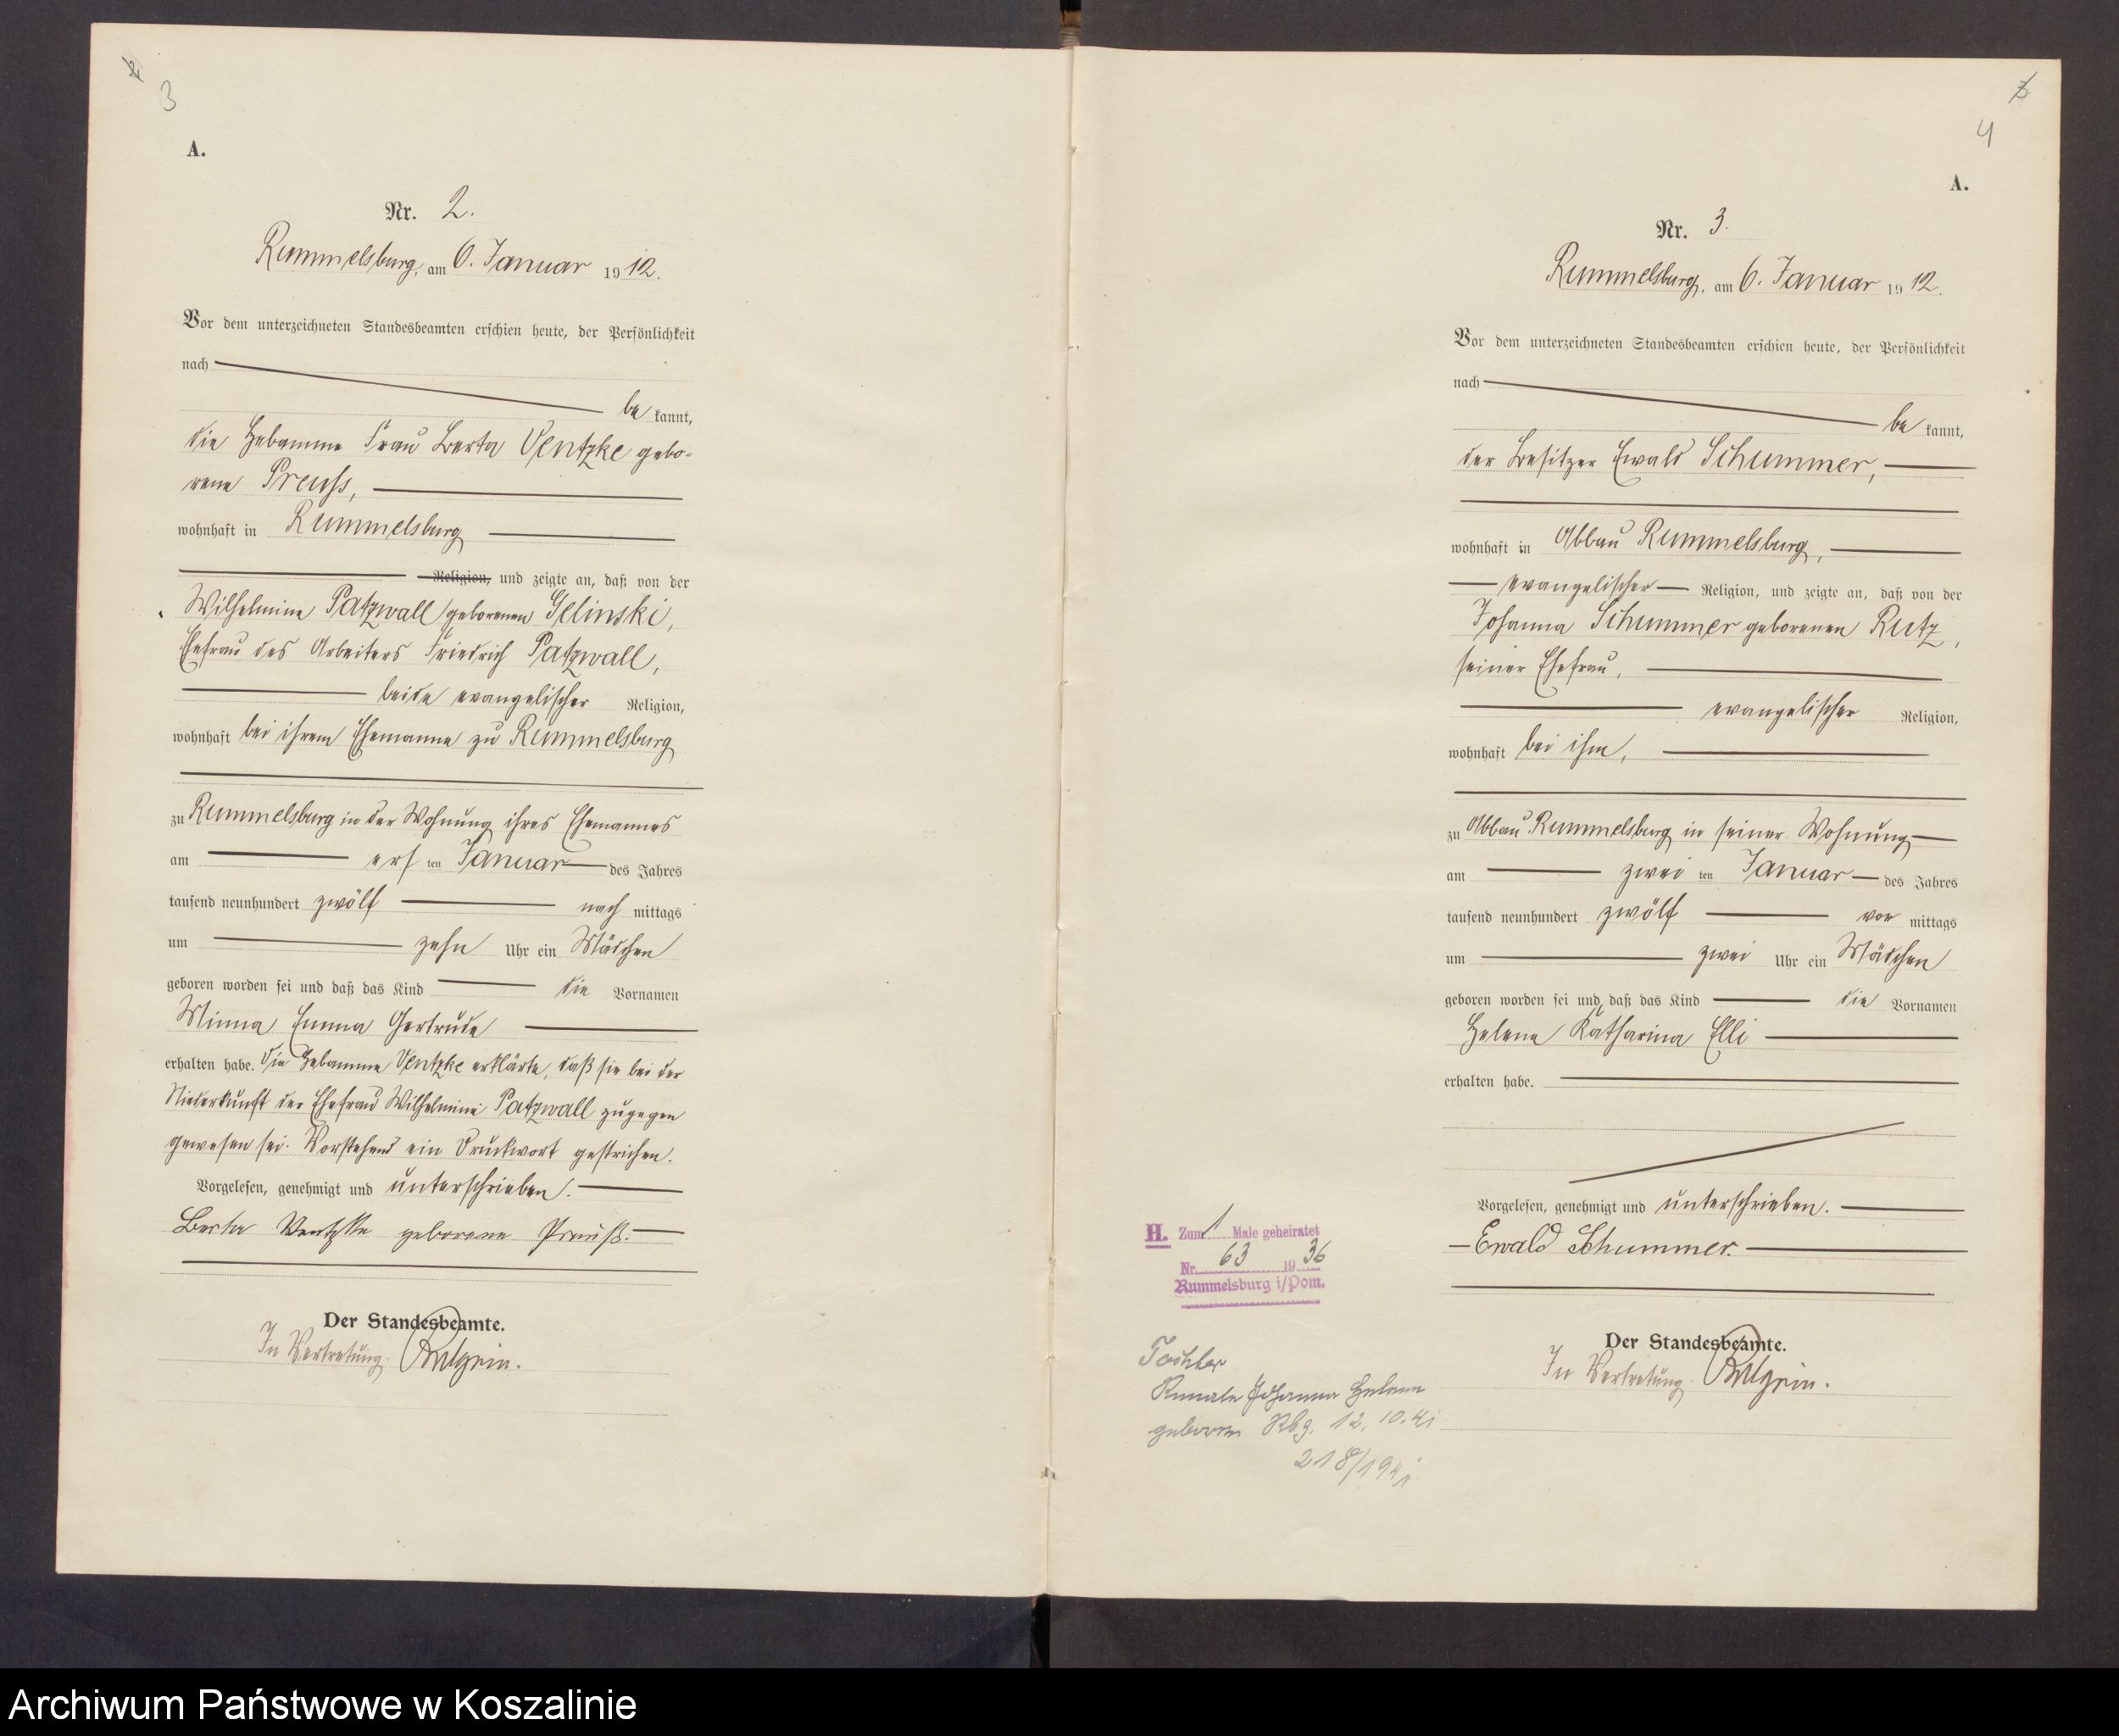 3
A.
Nr. 2.
Rummelsburg, am 6. Januar 1912.
Vor dem unterzeichneten Standesbeamten erschien heute, der Persönlichkeit
nach
be kannt,
die Hebamme Frau Berta Ventzke gebo-
rene Preuß,
wohnhaft in Rummelsburg
Religion, und zeigte an, daß von der
Wilhelmine Patzwall geborenen Gelinski,
Ehefrau des Arbeiters Friedrich Patzwall,
beide evangelischer Religion,
wohnhaft bei ihrem Ehemanne zu Rummelsburg
zu Rummelsburg in der Wohnung ihres Ehemannes
am ers ten Januar des Jahres
tausend neunhundert zwölf nach mittags
um zehn Uhr ein Mädchen
geboren worden sei und daß das Kind die Vornamen
Minna Emma Gertrude
erhalten habe. Die Hebamme Ventzke erklärte, daß sie bei der
Niederkunft der Ehefrau Wilhelmine Patzwall zugegen
gewesen sei. Vorstehend ein Druckwort gestrichen.
Vorgelesen, genehmigt und unterschrieben.
Berta Ventzke geborene Preuß.
Der Standesbeamte.
In Vertretung.
4
A.
Nr. 3.
Rummelsburg, am 6. Januar 1912.
Vor dem unterzeichneten Standesbeamten erschien heute, der Persönlichkeit
nach
be kannt,
der Besitzer Ewald Schummer,
wohnhaft in Abbau Rummelsburg,
evangelischer Religion, und zeigte an, daß von der
Johanna Schummer geborenen Rutz,
seiner Ehefrau,
evangelischer Religion,
wohnhaft bei ihm,
zu Abbau Rummelsburg in seiner Wohnung
am zwei ten Januar des Jahres
tausend neunhundert zwölf vor mittags
um zwei Uhr ein Mädchen
geboren worden sei und daß das Kind die Vornamen
Helene Katharina Elli
erhalten habe.
Vorgelesen, genehmigt und unterschrieben.
Ewald Schummer.
Der Standesbeamte.
In Vertretung.
H. Zum 1 Male geheiratet
Nr. 63 1936
Rummelsburg i/Pom.
Tochter
Renate Johanna Helene
geboren Rbg. 12.10.41
218/1941
Archiwum Państwowe w Koszalinie